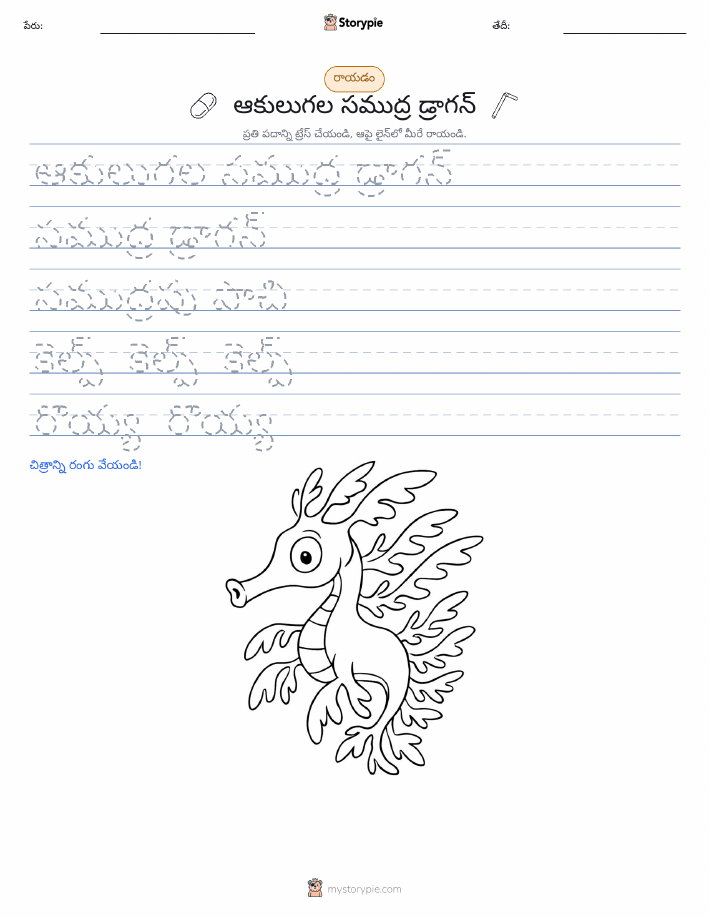 పేరు:
Storypie
తేదీ:
రాయడం
ఆకులుగల సముద్ర డ్రాగన్
ప్రతి పదాన్ని ట్రేస్ చేయండి, ఆపై లైన్‌లో మీరే రాయండి.
ఆకులుగల సముద్ర డ్రాగన్
సముద్ర డ్రాగన్
సముద్రపు పాచి
కెల్ప్ కెల్ప్ కెల్ప్
రొయ్య రొయ్య
చిత్రాన్ని రంగు వేయండి!
mystorypie.com